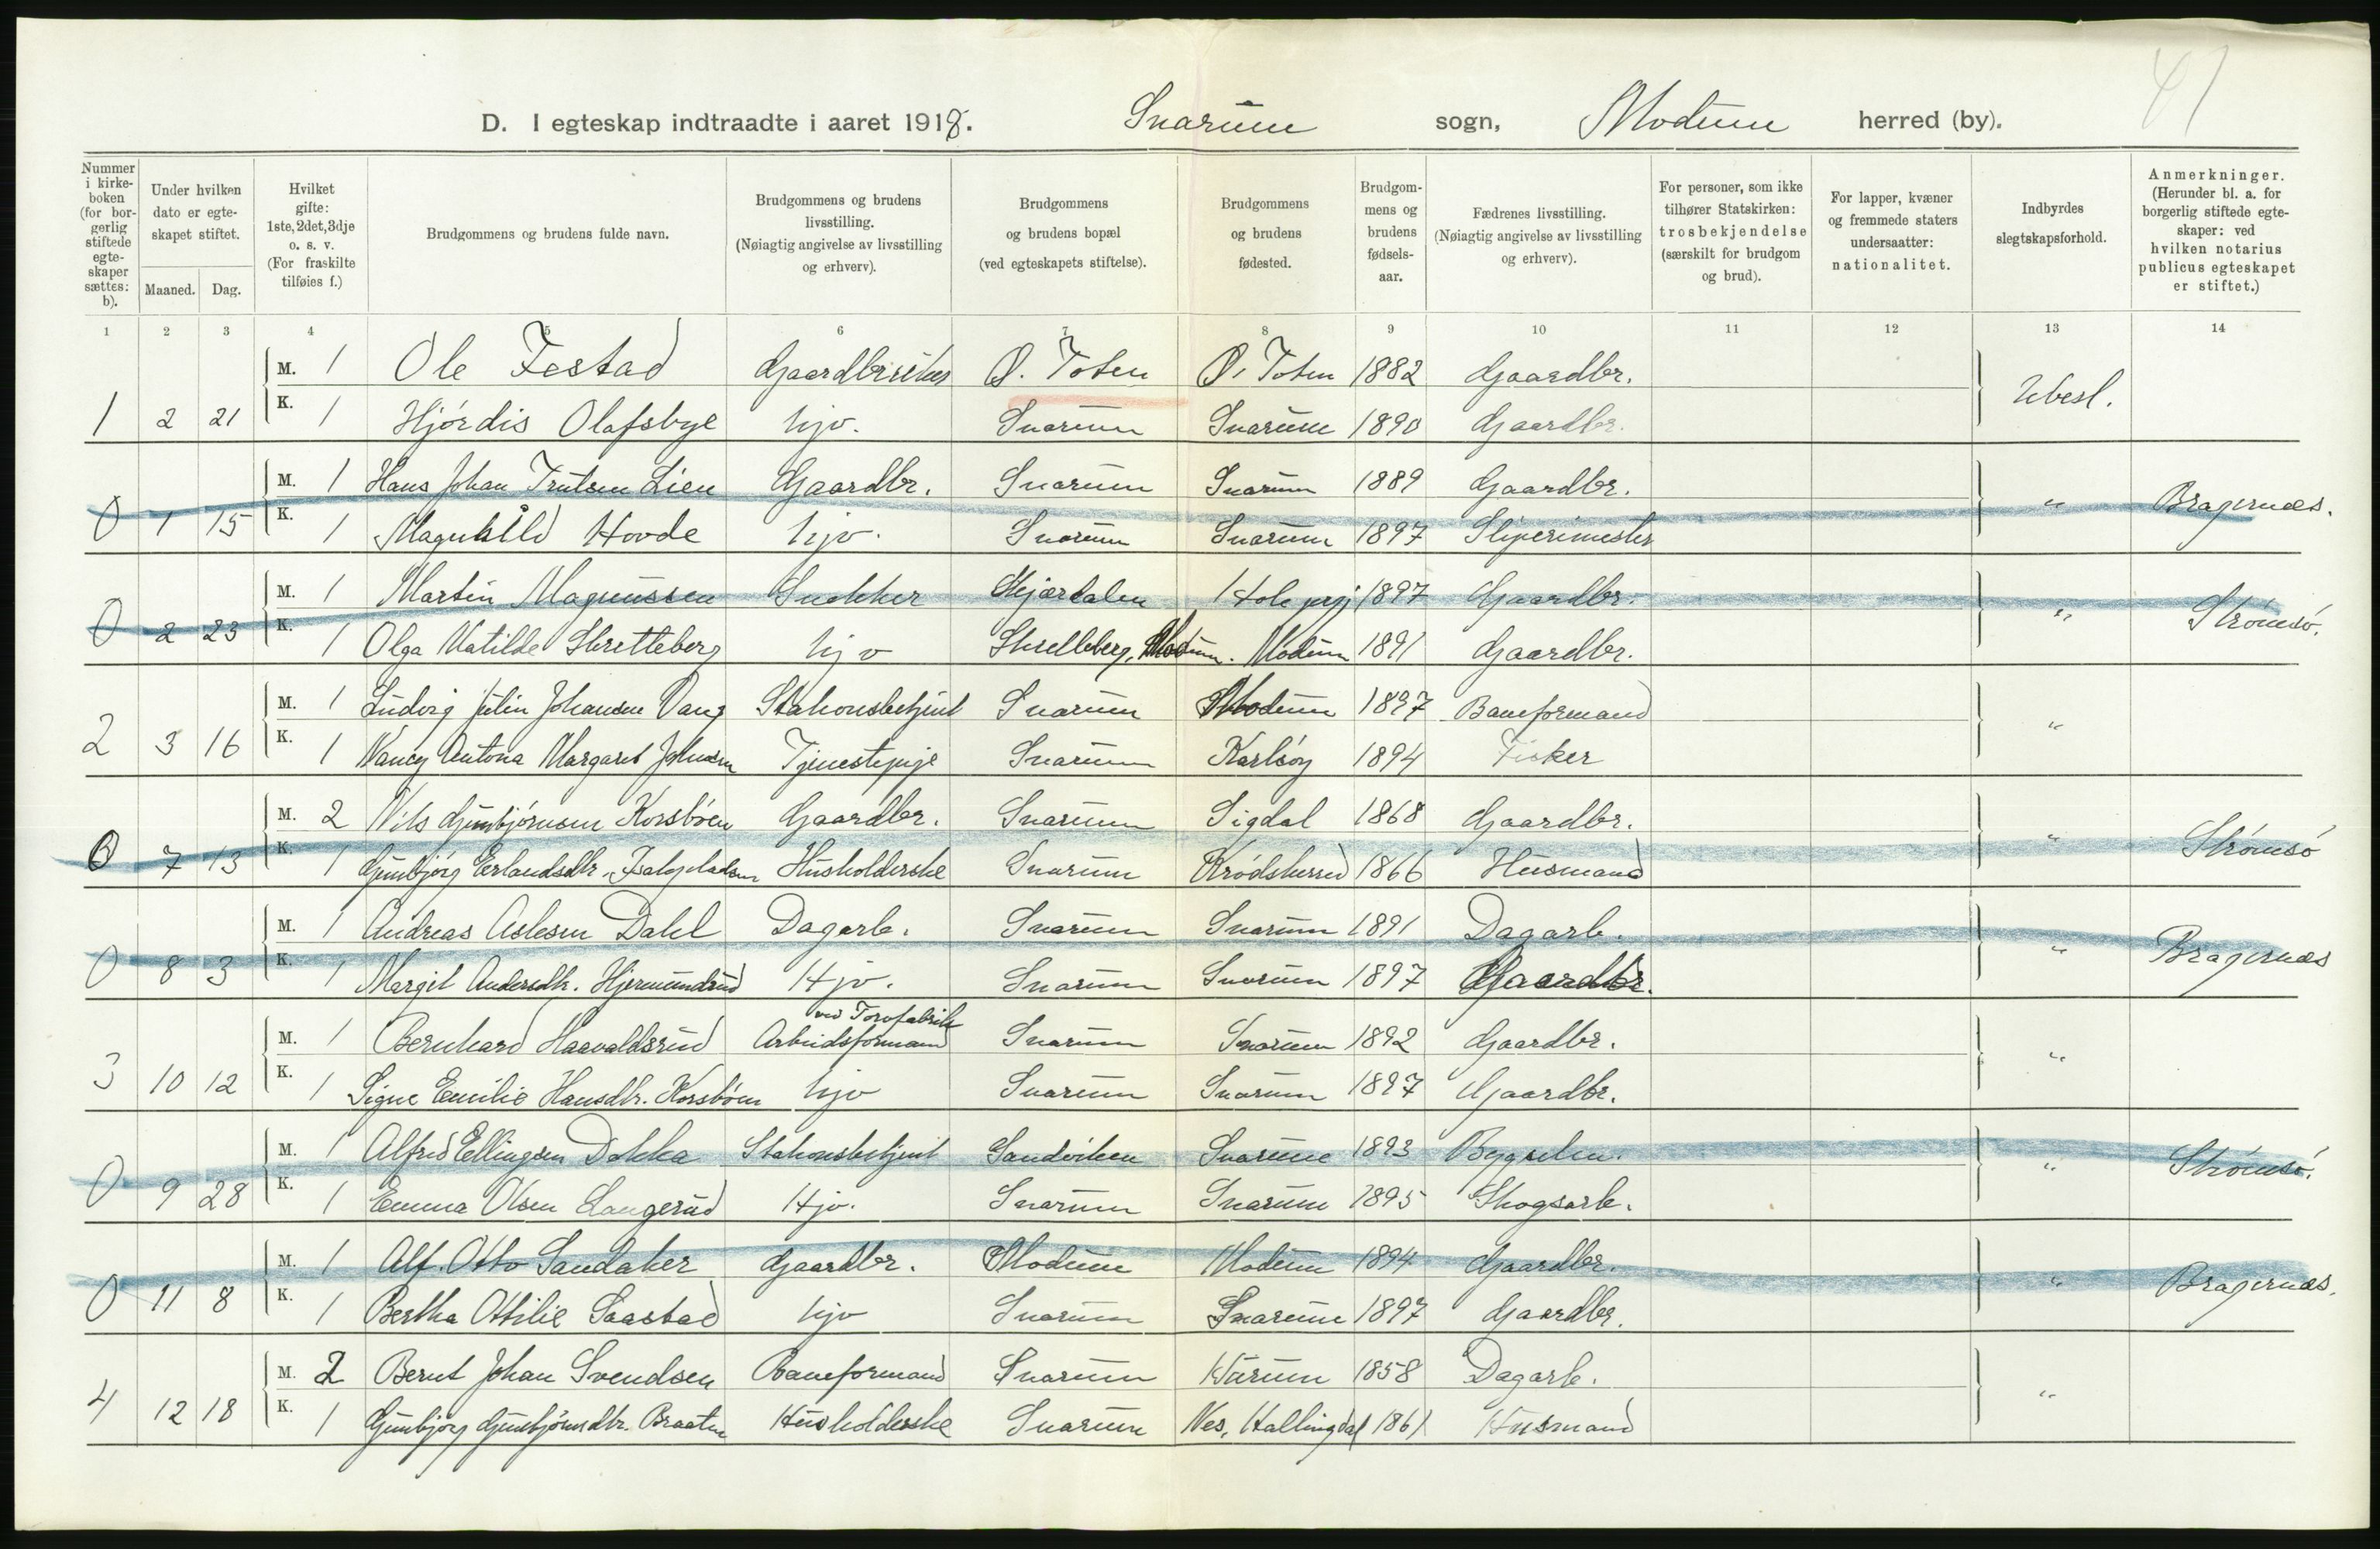 47
D. I egteskap indtraadte i aaret 1918. Snarum sogn, Modum herred (by).
Nummer i kirkeboken (for borgerlig stiftede egteskaper sættes: b).
Under hvilken dato er egteskapet stiftet.
Maaned. Dag.
Hvilket gifte: 1ste, 2det, 3dje o. s. v. (For fraskilte tilføies f.)
Brudgommens og brudens fulde navn.
Brudgommens og brudens livsstilling. (Nøiagtig angivelse av livsstilling og erhverv).
Brudgommens og brudens bopæl (ved egteskapets stiftelse).
Brudgommens og brudens fødested.
Brudgommens og brudens fødselsaar.
Fædrenes livsstilling. (Nøiagtig angivelse av livsstilling og erhverv).
For personer, som ikke tilhører Statskirken: trosbekjendelse (særskilt for brudgom og brud).
For lapper, kvæner og fremmede staters undersaatter: nationalitet.
Indbyrdes slegtskapsforhold.
Anmerkninger. (Herunder bl. a. for borgerlig stiftede egteskaper: ved hvilken notarius publicus egteskapet er stiftet.)
1 2 3 4 5 6 7 8 9 10 11 12 13 14
M. 1 Ole Festad Gaardbruker Ø. Toten Ø. Toten 1882 Gaardbr.
1 2 21 K. 1 Hjørdis Olafsbye hjv. Snarum Snarum 1890 Gaardbr. Ubesl.
M. 1 Hans Johan Trulsen Lien Gaardbr. Snarum Snarum 1889 Gaardbr.
0 1 15 K. 1 Magnhild Hovde hjv. Snarum Snarum 1897 Sliperimester " Bragernæs.
M. 1 Martin Magnussen Snekker Skjærdalen Hole prgj 1897 Gaardbr.
0 2 23 K. 1 Olga Matilde Skretteberg hjv Skretteberg, Modum. Modum 1891 Gaardbr. " Strømsø.
M. 1 Ludvig Julin Johansen Vang Stationsbetjent Snarum Modum 1897 Baneformand
2 3 16 K. 1 Nancy Antona Margaret Johnsen Tjenestepige Snarum Karlsøy 1894 Fisker "
M. 2 Nils Gunbjørnsen Korsbøen Gaardbr. Snarum Sigdal 1868 Gaardbr.
0 7 13 K. 1 Gunbjørg Erlandsdtr. Husholderske Snarum Krødsherred 1866 Husmand " Strømsø
M. 1 Andreas Aslesen Dahl Dagarb. Snarum Snarum 1891 Dagarb.
0 8 3 K. 1 Margit Andersdtr. Hjermundrud Hjv. Snarum Snarum 1897 Gaardbr. " Bragernæs
M. 1 Bernhard Haavaldsrud Arbeidsformand ved Torvfabrik Snarum Snarum 1892 Gaardbr.
3 10 12 K. 1 Signe Emilie Hansdtr. Korsbøen hjv Snarum Snarum 1897 Gaardbr. "
M. 1 Alfred Ellingsen Dokka Stationsbetjent Sandviken Snarum 1893 Bygselm.
0 9 28 K. 1 Emma Olsen Langerud Hjv. Snarum Snarum 1895 Skogsarb. " Strømsø.
M. 1 Alf. Otto Sandaker Gaardbr. Modum Modum 1894 Gaardbr.
0 11 8 K. 1 Bertha Ottilie Saastad hjv Snarum Snarum 1897 Gaardbr. " Bragernæs.
M. 2 Bernt Johan Svendsen Baneformand Snarum Hurum 1858 Dagarb.
4 12 18 K. 1 Gunbjørg Gunbjørnsdtr. Braaten Husholderske Snarum Nes, Hallingdal 1861 Husmand "